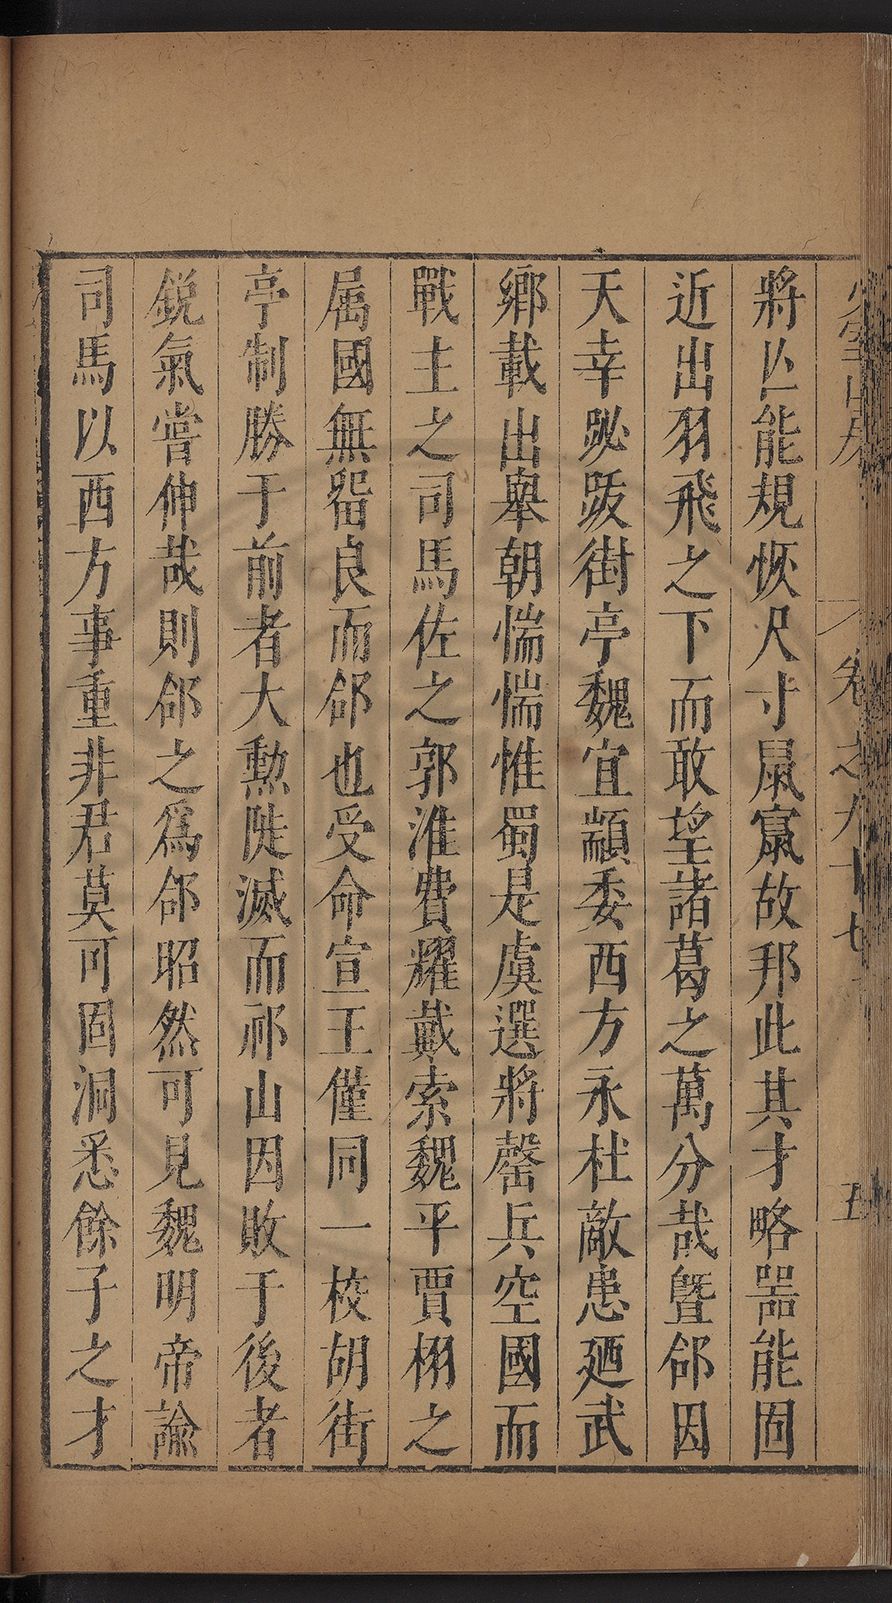 卷之九十七　五
將亾能規恢尺寸鼠竄故邦此其才略噐能固
近出羽飛之下而敢望諸葛之萬分哉曁郃因
天幸䟤跋街亭魏宜顓委西方永杜敵患廼武
鄉載出舉朝惴惴惟蜀是虞選將罄兵空國而
戰主之司馬佐之郭淮費耀戴索魏平賈栩之
属國無留良而郃也受命宣王僅同一校胡街
亭制勝于前者大勳陡滅而祁山因敗于後者
鋭氣嘗伸哉則郃之爲郃昭然可見魏明帝諭
司馬以西方事重非君莫可固洞悉餘子之才